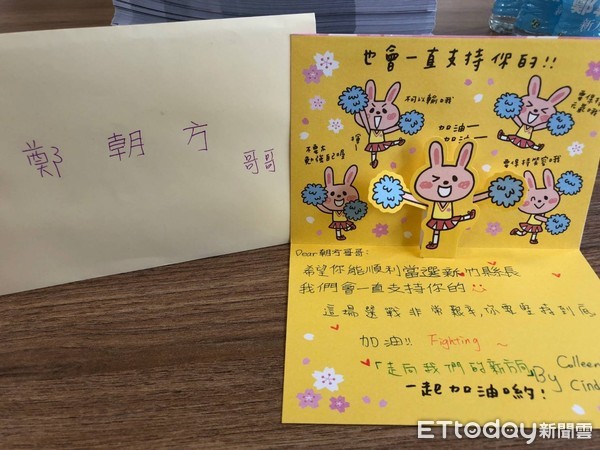 鄭朝方
哥哥
也會一直支持你的!!
不可以輸哦
加油一
加油一
Dear朝方哥哥:
希望你能順利當選新竹縣長
我們會一直支持你的
這場選戰非常艱辛,你要堅持到底
加油!! Fighting ~
「走向我們的新方向」
By Colleen
Cind
一起加油喲!
ETtoday新聞雲